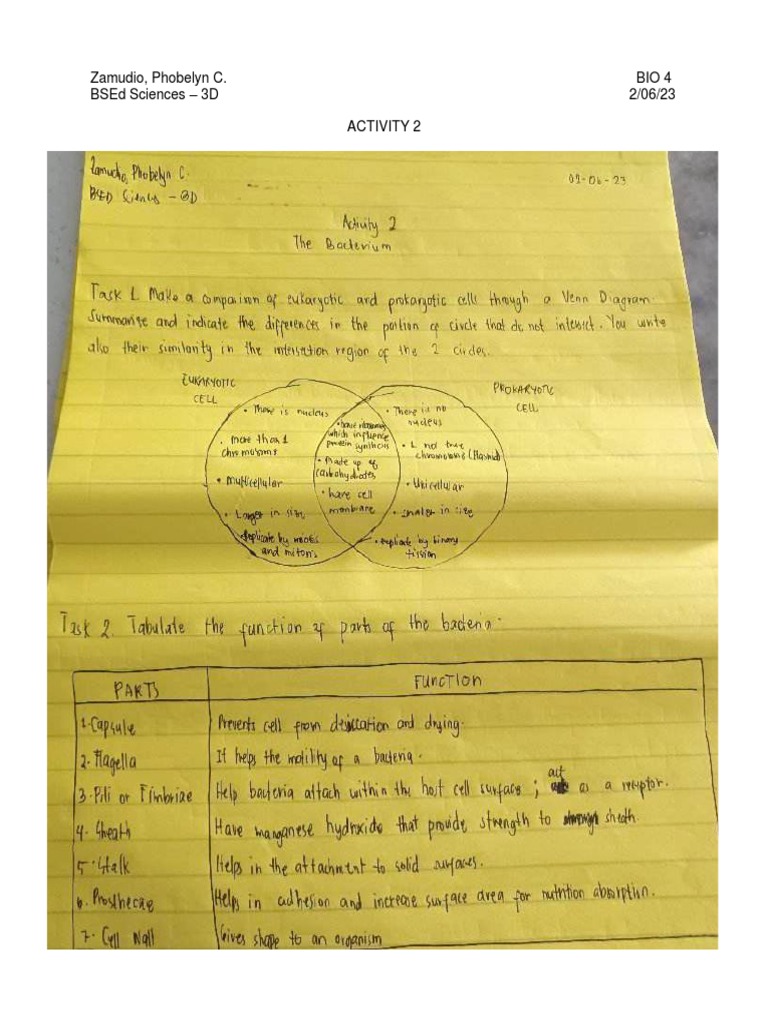 Zamudio, Phobelyn C. BIO 4
BSEd Sciences – 3D 2/06/23
ACTIVITY 2
Zamudio, Phobelyn C. 02-06-23
BSED Sciences - 3D
Activity 2
The Bacterium
Task 1. Make a comparison of eukaryotic and prokaryotic cells through a Venn Diagram
Summarise and indicate the differences in the portion of circle that do not intersect. You write
also their similarity in the intersection region of the 2 circles.
EUKARYOTIC
CELL
PROKARYOTIC
CELL
• There is nucleus
• more than 1
chromosoms
• Multicellular
• Larger in size
• Replicate by meiosis
and mitosis
• have ribosomes
which influence
protein synthesis
• Made up of
carbohydrates
• have cell
membrane
• There is no
nucleus
• 1 not true
chromosome (Plasmid)
• Unicellular
• smaller in size
• replicate by binary
fission
Task 2. Tabulate the function of parts of the bacteria.
PARTS FUNCTION
1. Capsule Prevents cell from and drying.
2. Flagella It helps the motility of a bacteria.
3. Pili or Fimbriae Help bacteria attach within the host cell surface; act as a receptor.
4. Sheath Have manganese hydroxide that provide strength to sheath.
5. Stalk Helps in the attachment to solid surfaces.
6. Prosthecae Helps in adhesion and increase surface area for nutrition absorption.
7. Cell Wall Gives shape to an organism